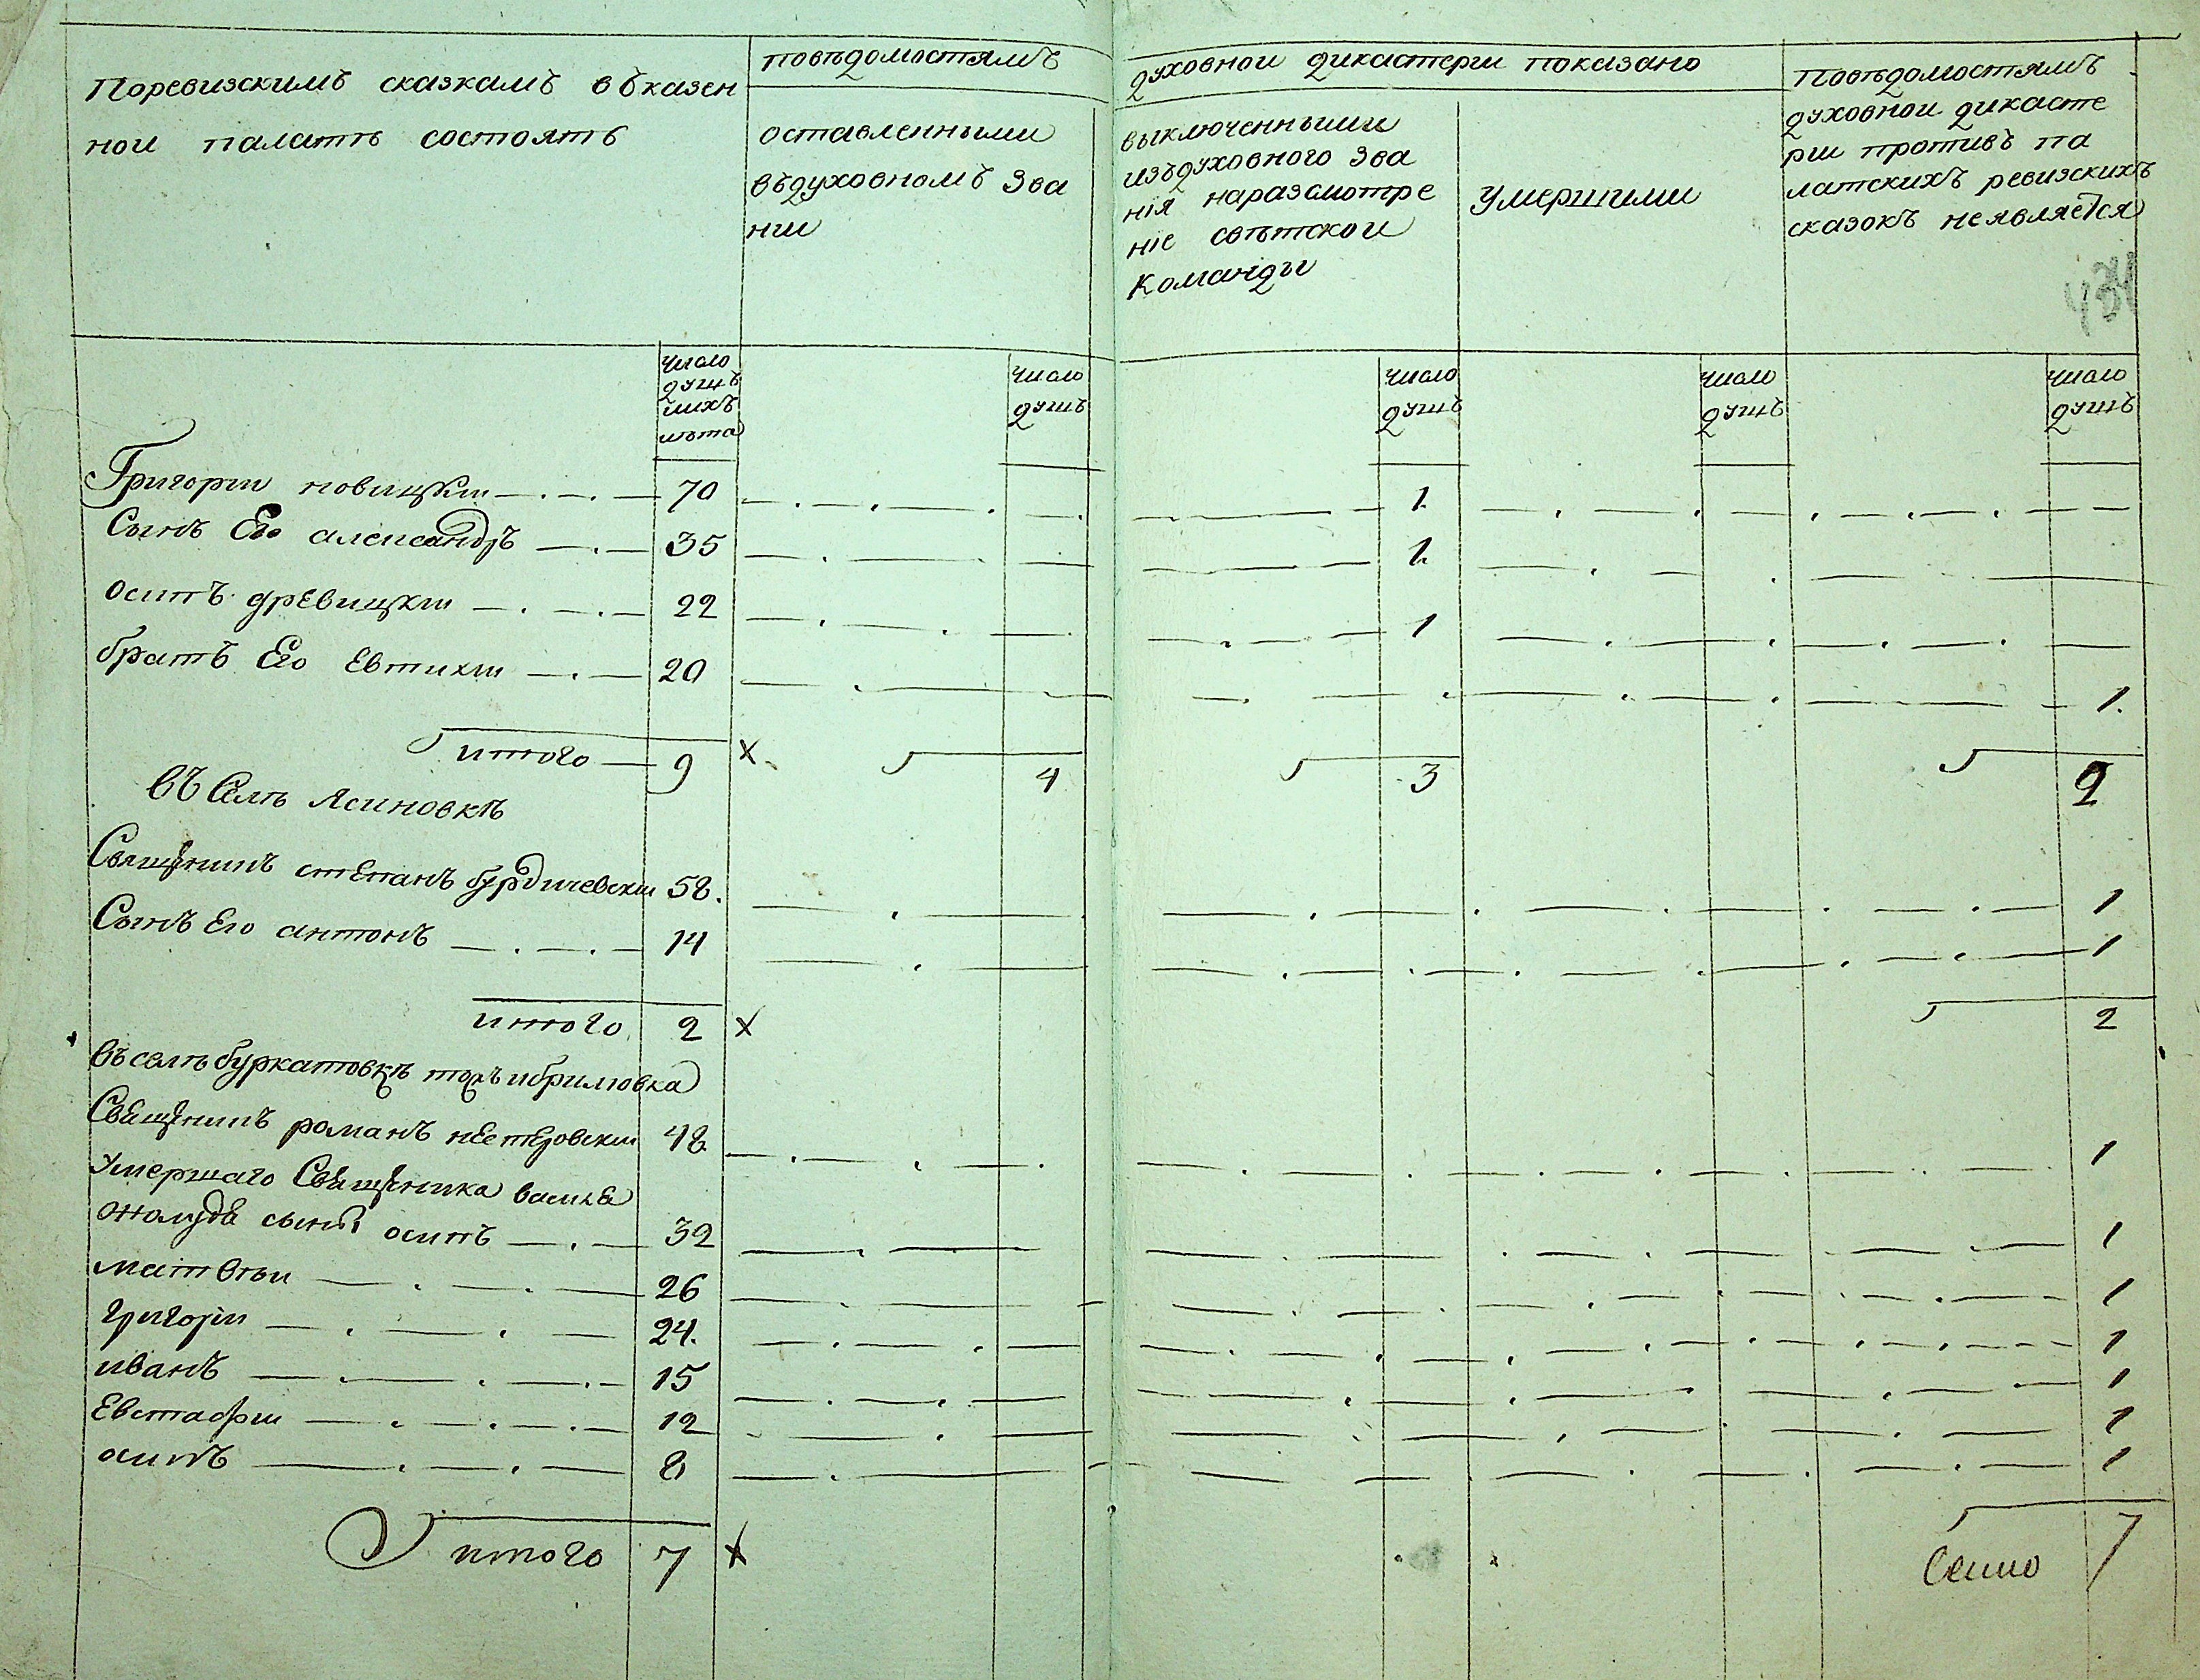 Поревизскимъ сказкамъ въказен
нои палатѣ состоятъ
повѣдомостямъ
оставленными
въдуховномъ зва
нии
духовнои дикастерии показано
выключенными
изъдуховного зва
нія наразсмотре
ніе свѣтскои
команды
умершими
Повѣдомостямъ
духовнои дикасте
рии противъ па
латскихъ ревизскихъ
сказокъ неявляется
число душъ ихъ лѣта
число душъ
число душъ
число душъ
число душъ
Григории новицкии 70 1.
Сынъ Его александръ 35 1.
осипъ древицкии 22 1
братъ Его Евтихии 20 1.
итого 9 х 4 3 2
въ Селѣ Ясиновкѣ
Священникъ стЕпанъ бурдичевскии 58. 1
Сынъ Его антонъ 14 1
итого 2 х 2
въселѣ буркатовкѣ тожъ
Священникъ романъ нЕстЕровскии 48 1
Умершаго Священника василя
жолудя сыны осипъ 32 1
матвѣи 26 1
григории 24. 1
иванъ 15 1
Евстафии 12 1
осипъ 8 1
итого 7 х 7